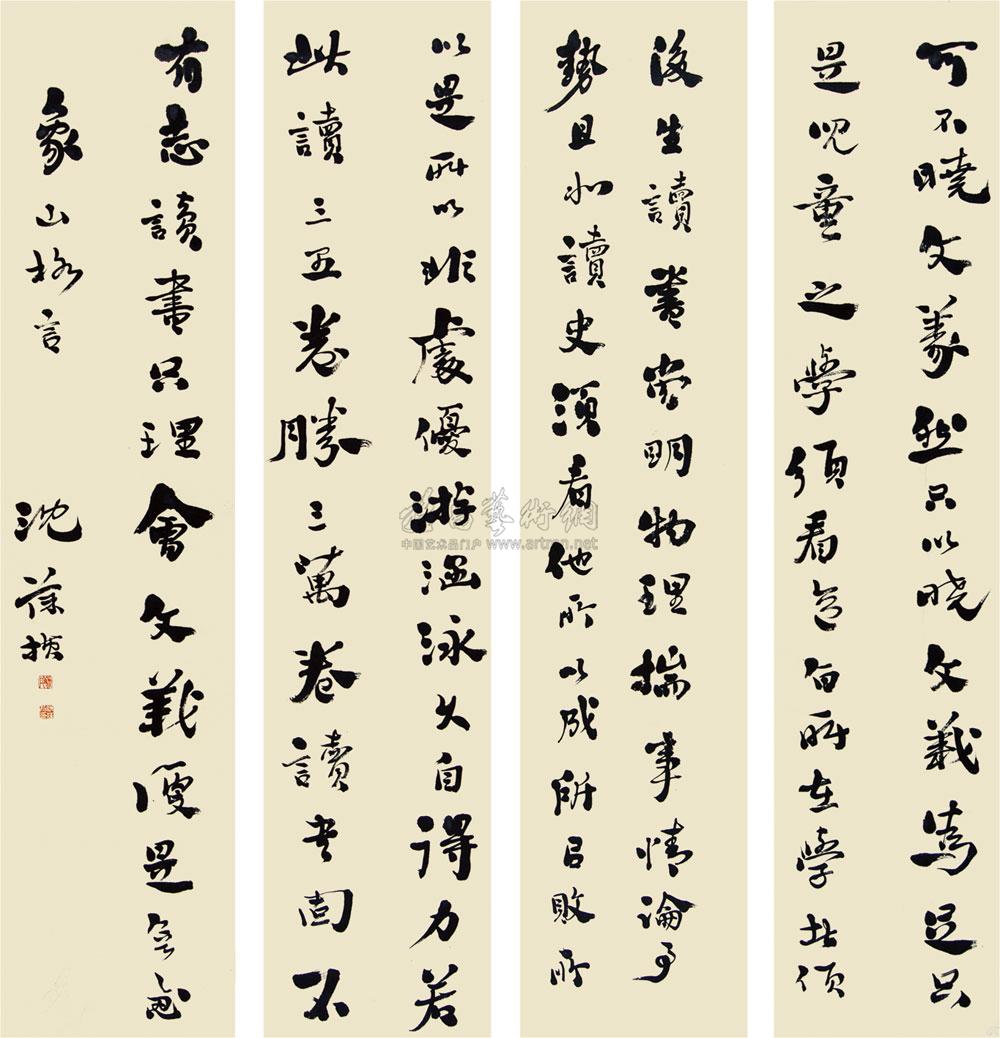 可不曉文義然只以曉文義為足只
是兒童之學須看意旨所在學者須
後生讀書當明物理揣事情論事
勢且如讀史須看他所以成所以敗所
以是所以非處優游涵泳久自得力若
此讀三五卷勝三萬卷讀書固不
有志讀書只理會文義便是無志
象山格言
沈葆楨
雅昌藝術網
中国艺术品门户 www.artron.net